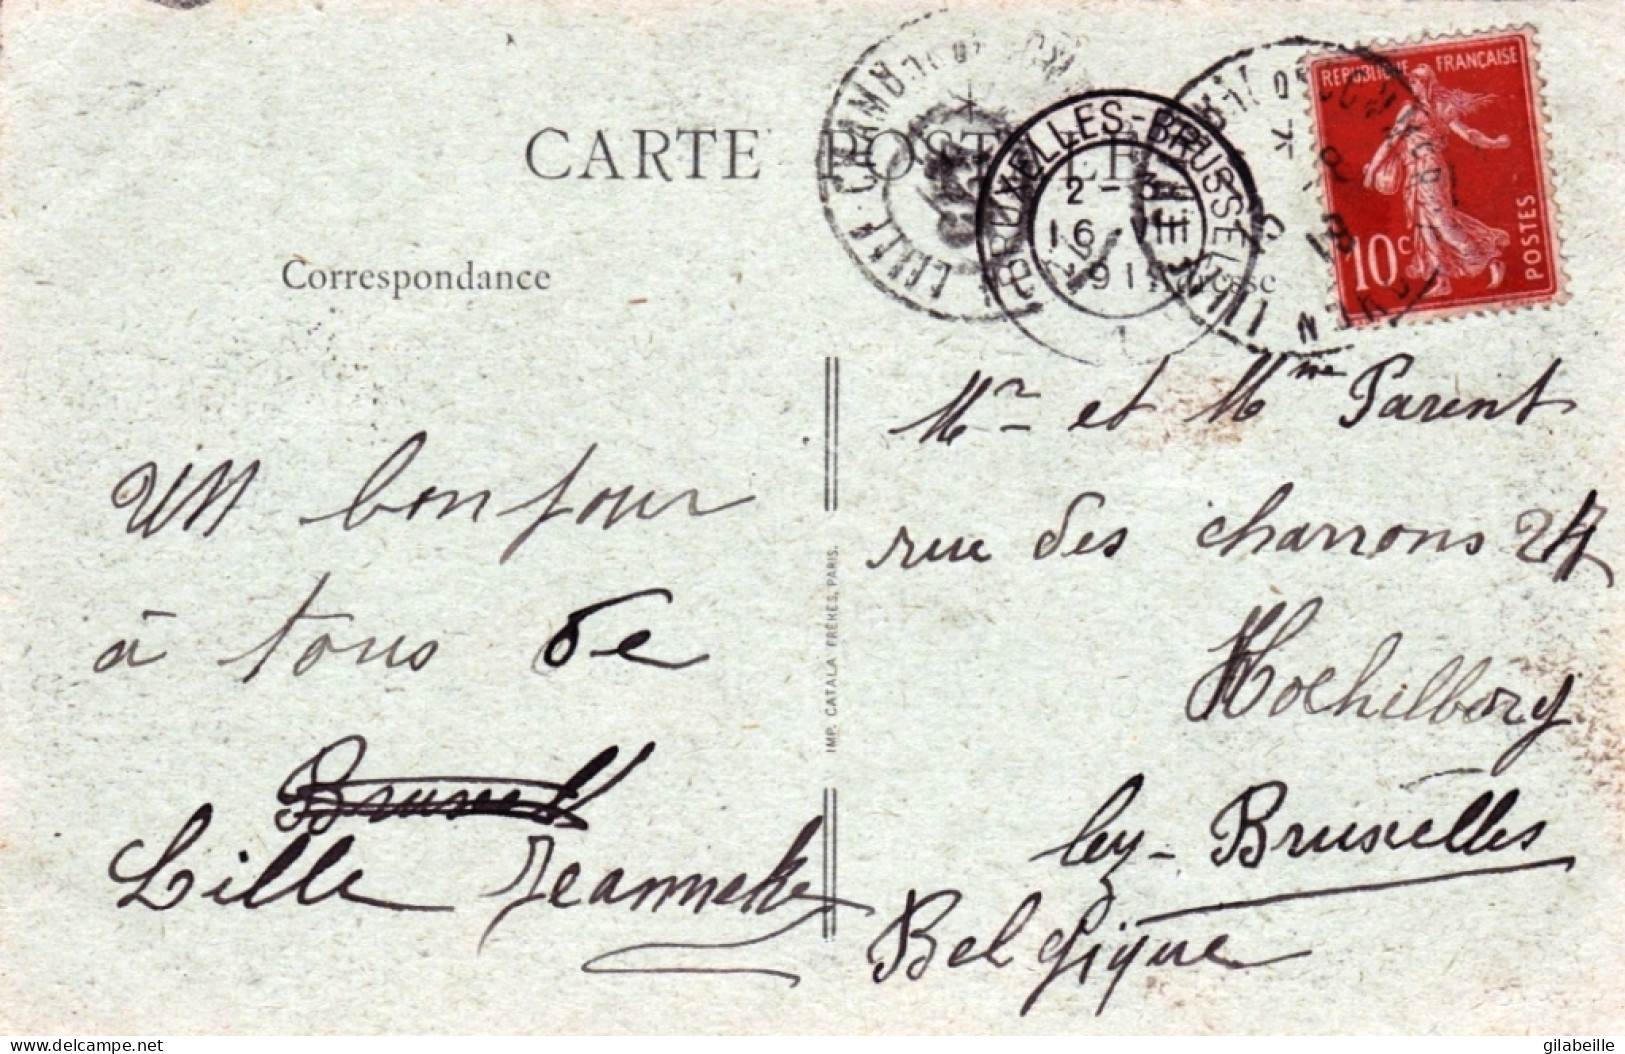 CARTE POSTALE
Correspondance
Adresse
BRUXELLES-BRUSSEL
2 - 3
16 VIII
191
LILLE
REPUBLIQUE FRANÇAISE
10c
POSTES
Un bonjour
à tous de
Lille Jeanneke
Mr et Mme Parent
rue des charrons 24
ley - Bruxelles
Belgique
IMP. CATALA FRÈRES, PARIS.
delcampe.net
gilabeille